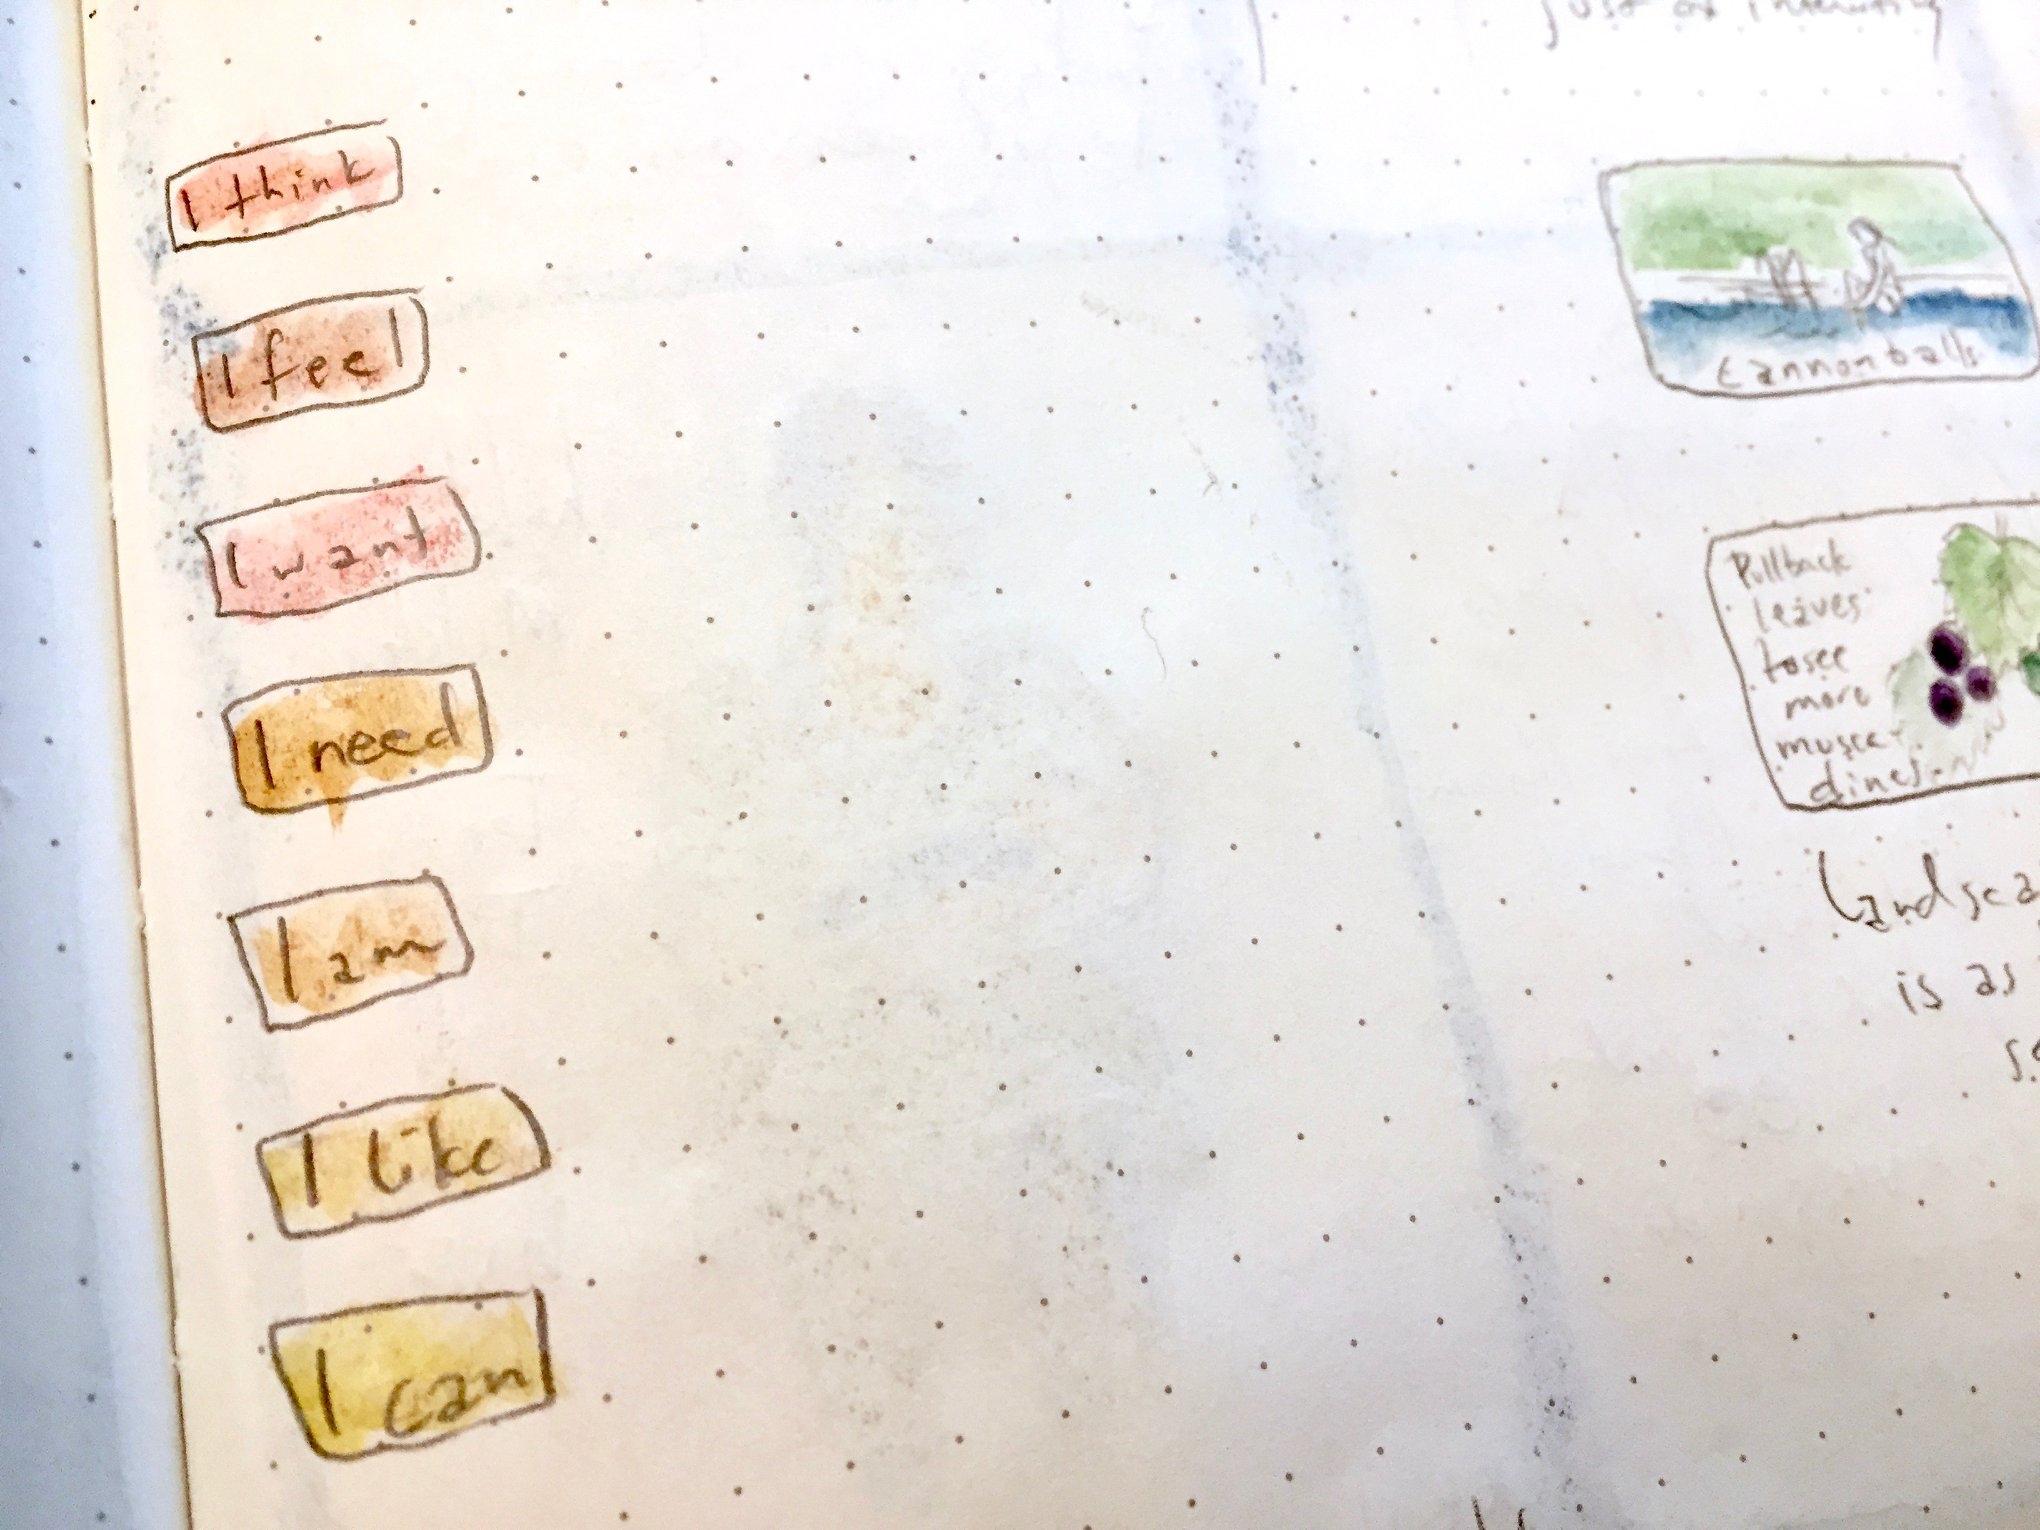 just as interesting
I think
I feel
I want
I need
I am
I like
I can
Cannonballs
Pullback
leaves
to see
more
musca
dines
Landsca
is as